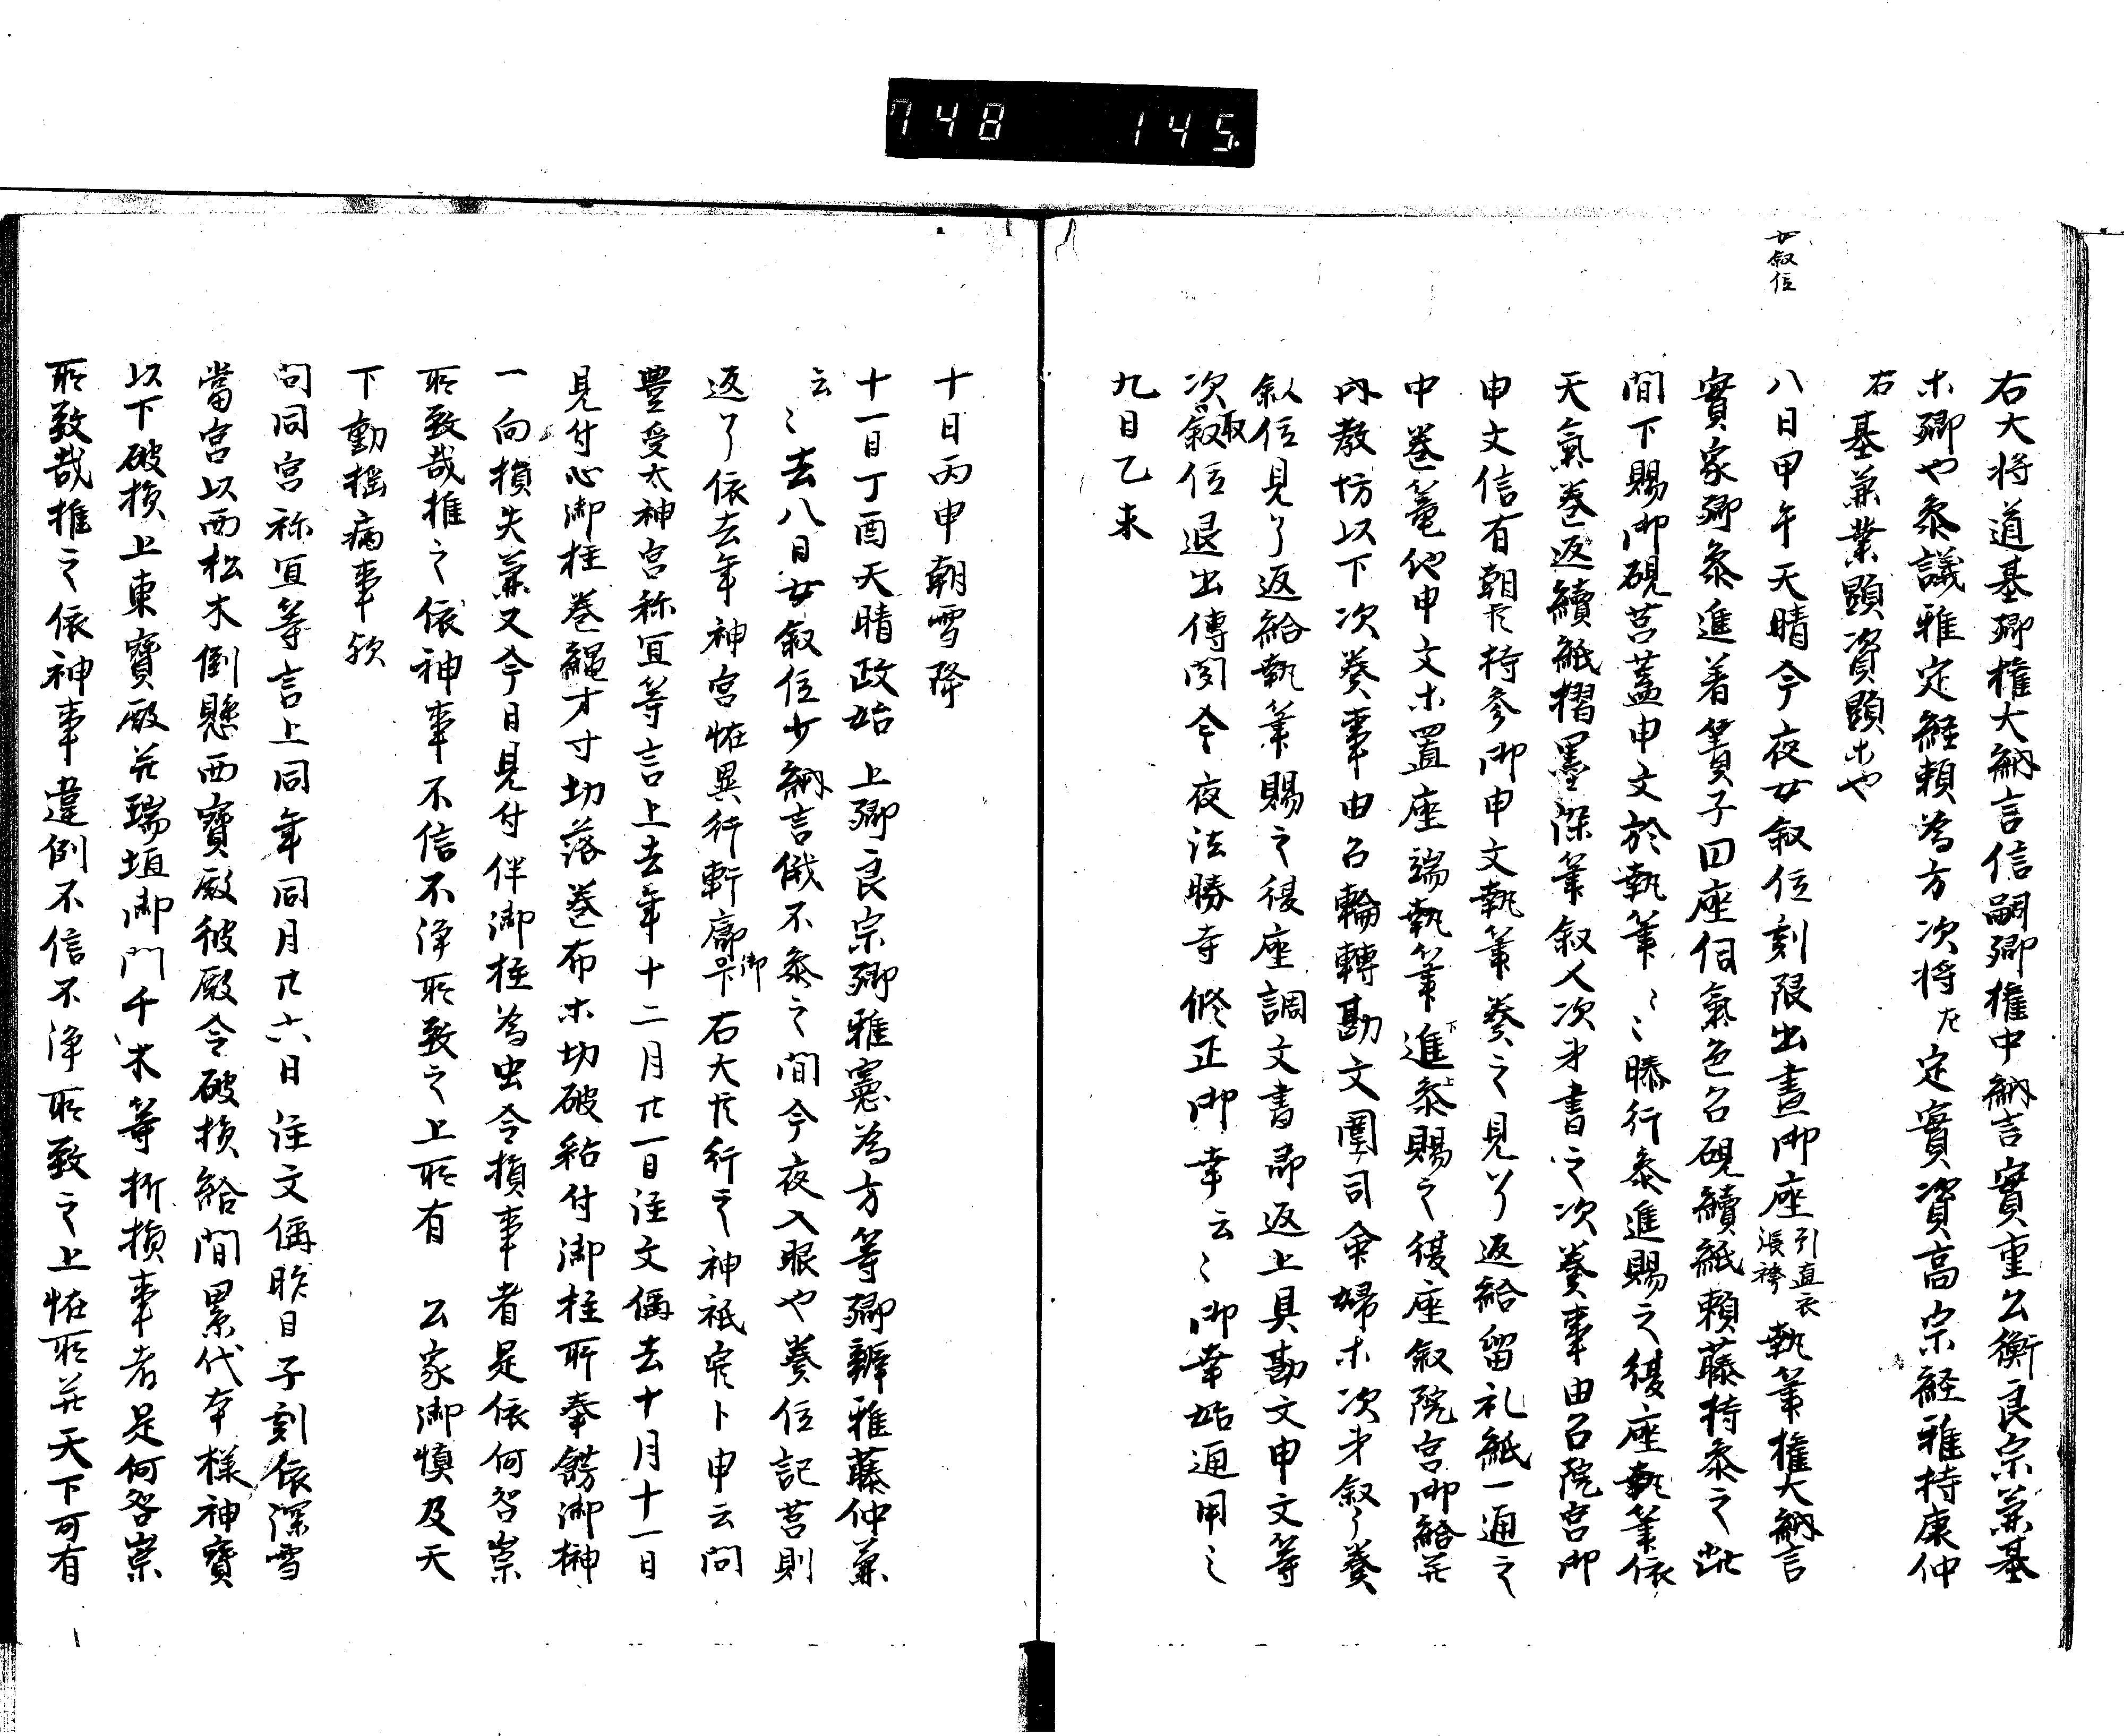 748 145.
右大将道基卿権大納言信嗣卿権中納言實重公衡良宗兼基
木卿や叅議雅定経頼為方次将左定實資高宗経雅持康仲
右基兼業顕資顕木や
女叙位
八日甲午天晴今夜女叙位刻限出晝御座引直衣張袴執筆権大納言
實家卿叅進着簀子円座伺氣色召硯續紙頼藤持叅之此
間下賜御硯莒蓋申文於執筆〻〻膝行叅進賜之復座執筆依
天氣巻返續紙摺墨深筆叙人次才書之次奏事由召院宮御
申文信有朝臣持参御申文執筆奏之見了返給留礼紙一通之
中巻篭他申文木置座端執筆進下叅上賜之復座叙院宮御給并
内教坊以下次奏事由召輪轉勘文闈司命婦木次才叙了奏
叙位見了返給執筆賜之復座調文書即返上具勘文申文等
次取叙位退出傳聞今夜法勝寺修正御幸云〻御幸始通用之
九日乙未
十日丙申朝雪降
十一日丁酉天晴政始上卿良宗卿雅憲為方等卿辨雅藤仲兼
云〻去八日女叙位少納言俄不叅之間今夜入眼や奏位記莒則
返了依去年神宮恠異行軒廊御卜右大臣行之神祇官卜申云問
豊受太神宮祢宜等言上去年十二月廿一日注文偁去十月十一日
見付心御柱巻縄才寸切落巻布木切破粘付御柱所奉餝御榊
一向損失兼又今日見付件御柱為虫令損事者是依何咎祟
所致哉推之依神事不信不浄所致之上所有公家御慎及天
下動揺病事欤
問同宮祢宜等言上同年同月廿六日注文偁昨日子刻依深雪
當宮以西松木倒懸西寶殿彼殿令破損給間累代本様神寶
以下破損上東寶殿并瑞垣御門千木等折損事者是何咎祟
所致哉推之依神事違例不信不浄所致之上恠所并天下可有